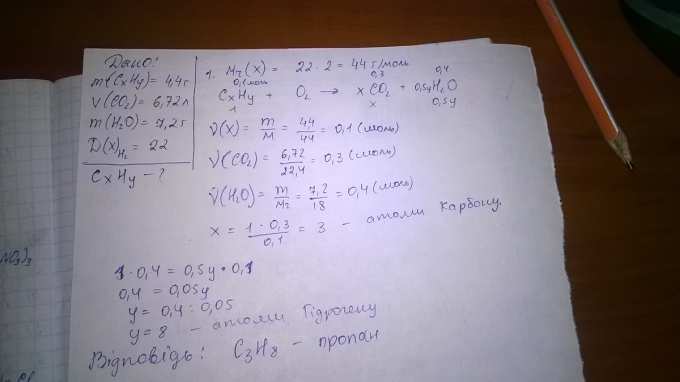 Дано:
m(CxHy) = 4,4г
V(CO2) = 6,72л
m(H2O) = 7,2г
D(x)H2 = 22
CxHy - ?
1. Mr(x) = 22 · 2 = 44 г/моль
0,1моль 0,3 0,4
CxHy + O2 → x CO2 + 0,5y H2O
1 x 0,5y
ν(x) = m/M = 4,4/44 = 0,1 (моль)
ν(CO2) = 6,72/22,4 = 0,3 (моль)
ν(H2O) = m/Mr = 7,2/18 = 0,4 (моль)
x = 1 · 0,3/0,1 = 3 - атоми Карбону.
1 · 0,4 = 0,5y · 0,1
0,4 = 0,05y
y = 0,4 : 0,05
y = 8 - атоми Гідрогену
Відповідь: C3H8 - пропан
NO3)3